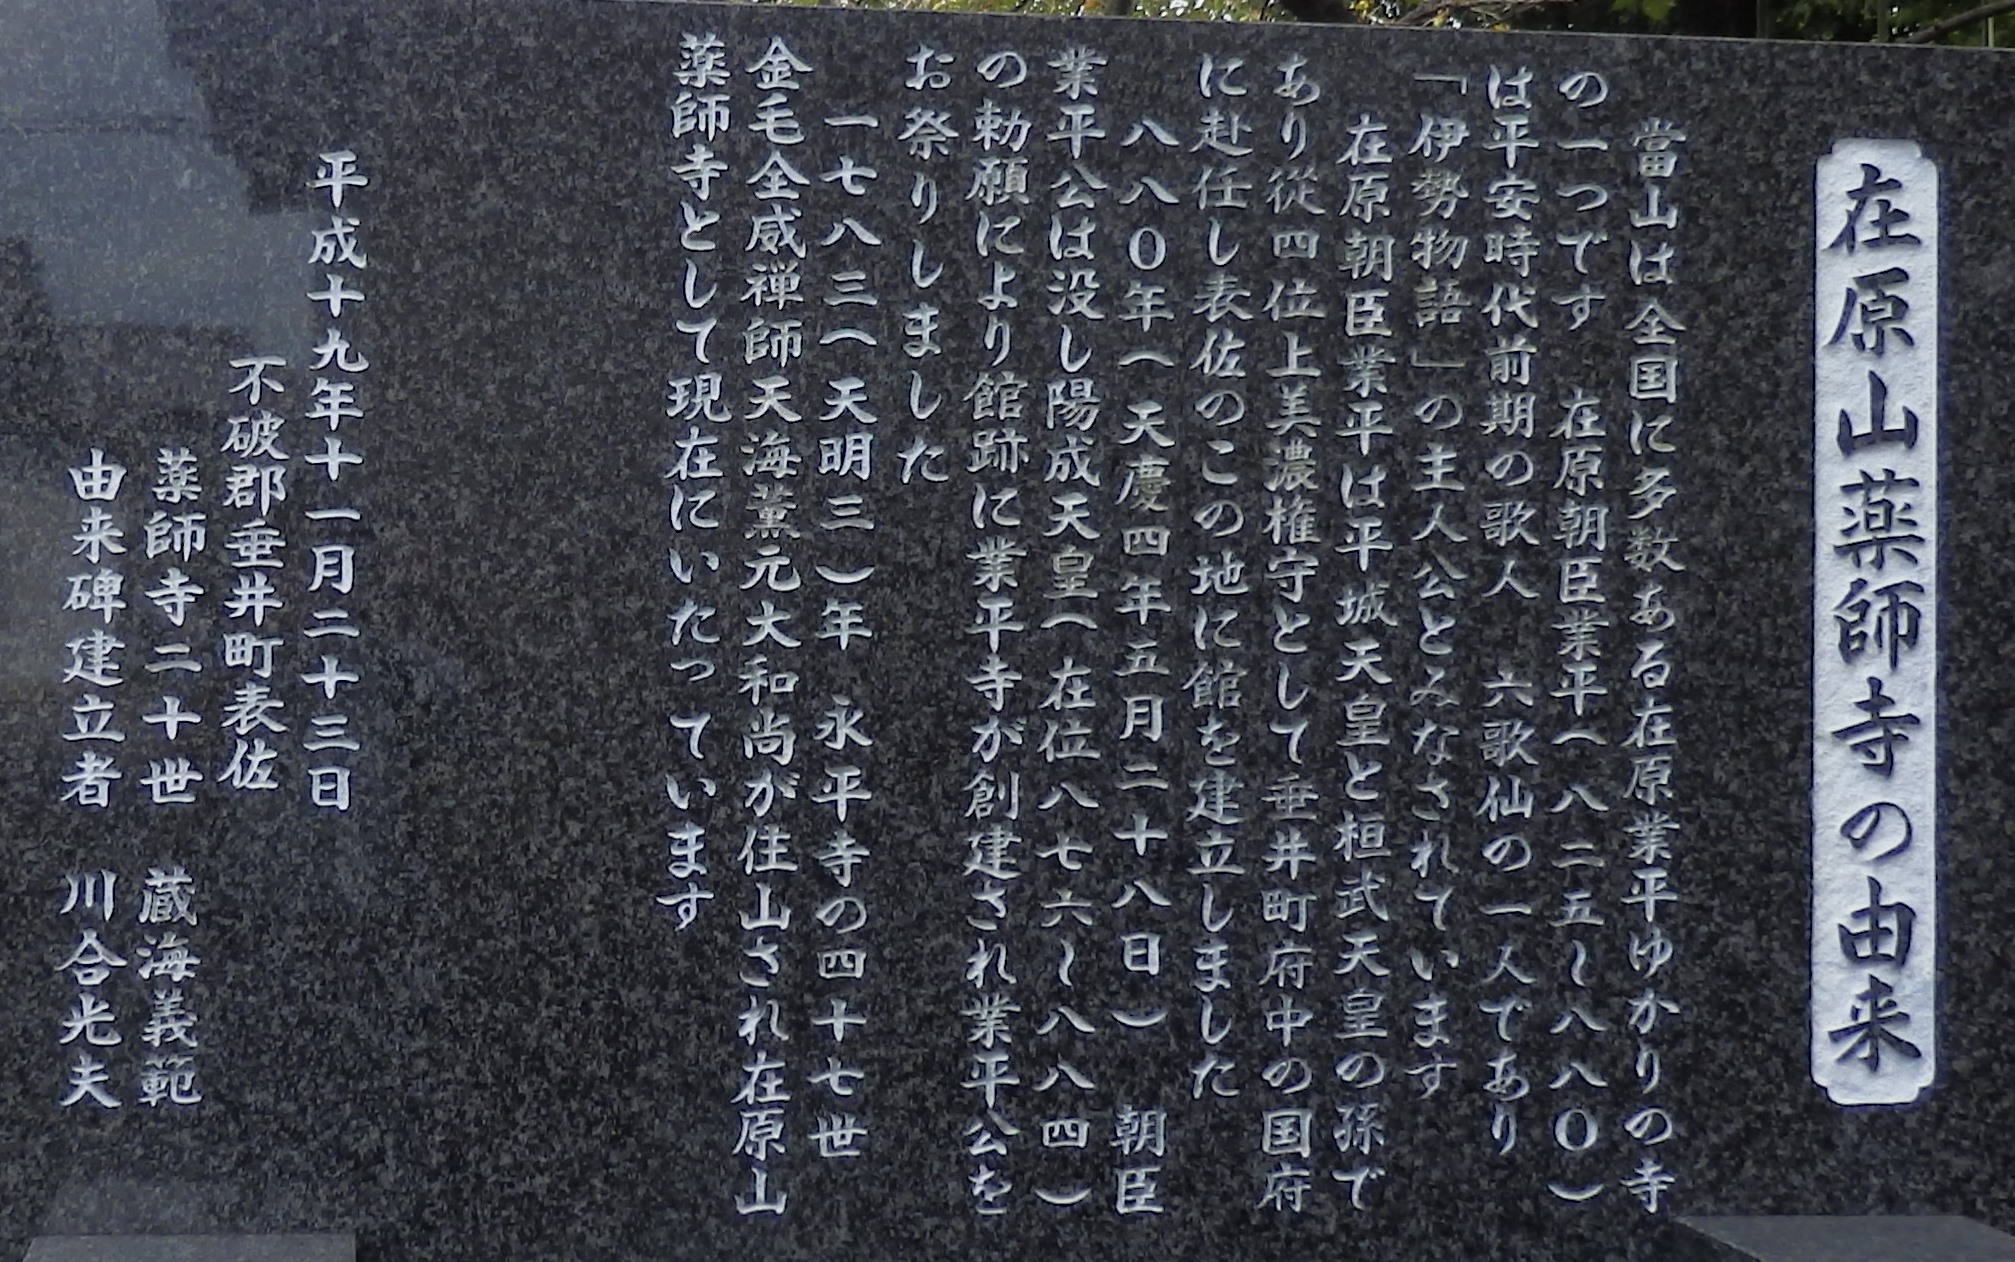 在原山薬師寺の由来
當山は全国に多数ある在原業平ゆかりの寺
の一つです 在原朝臣業平(八二五~八八〇)
は平安時代前期の歌人 六歌仙の一人であり
「伊勢物語」の主人公とみなされています
在原朝臣業平は平城天皇と桓武天皇の孫で
あり従四位上美濃権守として垂井町府中の国府
に赴任し表佐のこの地に館を建立しました
八八〇年(天慶四年五月二十八日) 朝臣
業平公は没し陽成天皇(在位八七六~八八四)
の勅願により館跡に業平寺が創建され業平公を
お祭りしました
一七八三(天明三)年 永平寺の四十七世
金毛全威禅師天海薫元大和尚が住山され在原山
薬師寺として現在にいたっています
平成十九年十一月二十三日
不破郡垂井町表佐
薬師寺二十世 蔵海義範
由来碑建立者 川合光夫